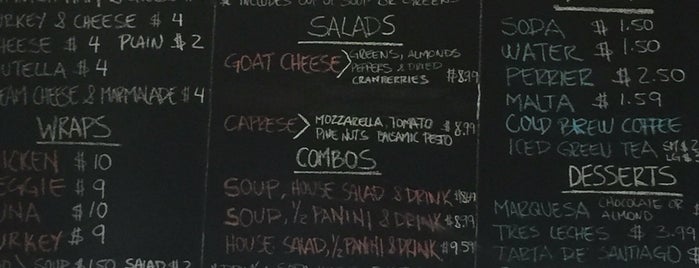 & CHEESE $ 4
$ 4 PLAIN $ 2
$ 4
CHEESE & MARMALADE $ 4
WRAPS
$ 10
$ 9
$ 10
$ 9
SOUP $1.50 SALAD $2
* INCLUDES CUP OF SOUP OR GREENS
SALADS
GOAT CHEESE > GREENS, ALMONDS
PEPPERS & DRIED
CRANBERRIES $8.99
CAPRESE > MOZZARELLA, TOMATO $8.99
PINE NUTS BALSAMIC PESTO
COMBOS
SOUP, HOUSE SALAD & DRINK
SOUP, 1/2 PANINI & DRINK $8.99
HOUSE SALAD, 1/2 PANINI & DRINK $9.59
SODA $ 1.50
WATER $ 1.50
PERRIER $ 2.50
MALTA $ 1.59
COLD BREW COFFEE
ICED GREEN TEA
DESSERTS
MARQUESA CHOCOLATE OR
ALMOND
TRES LECHES $ 3.99
TARTA DE SANTIAGO $